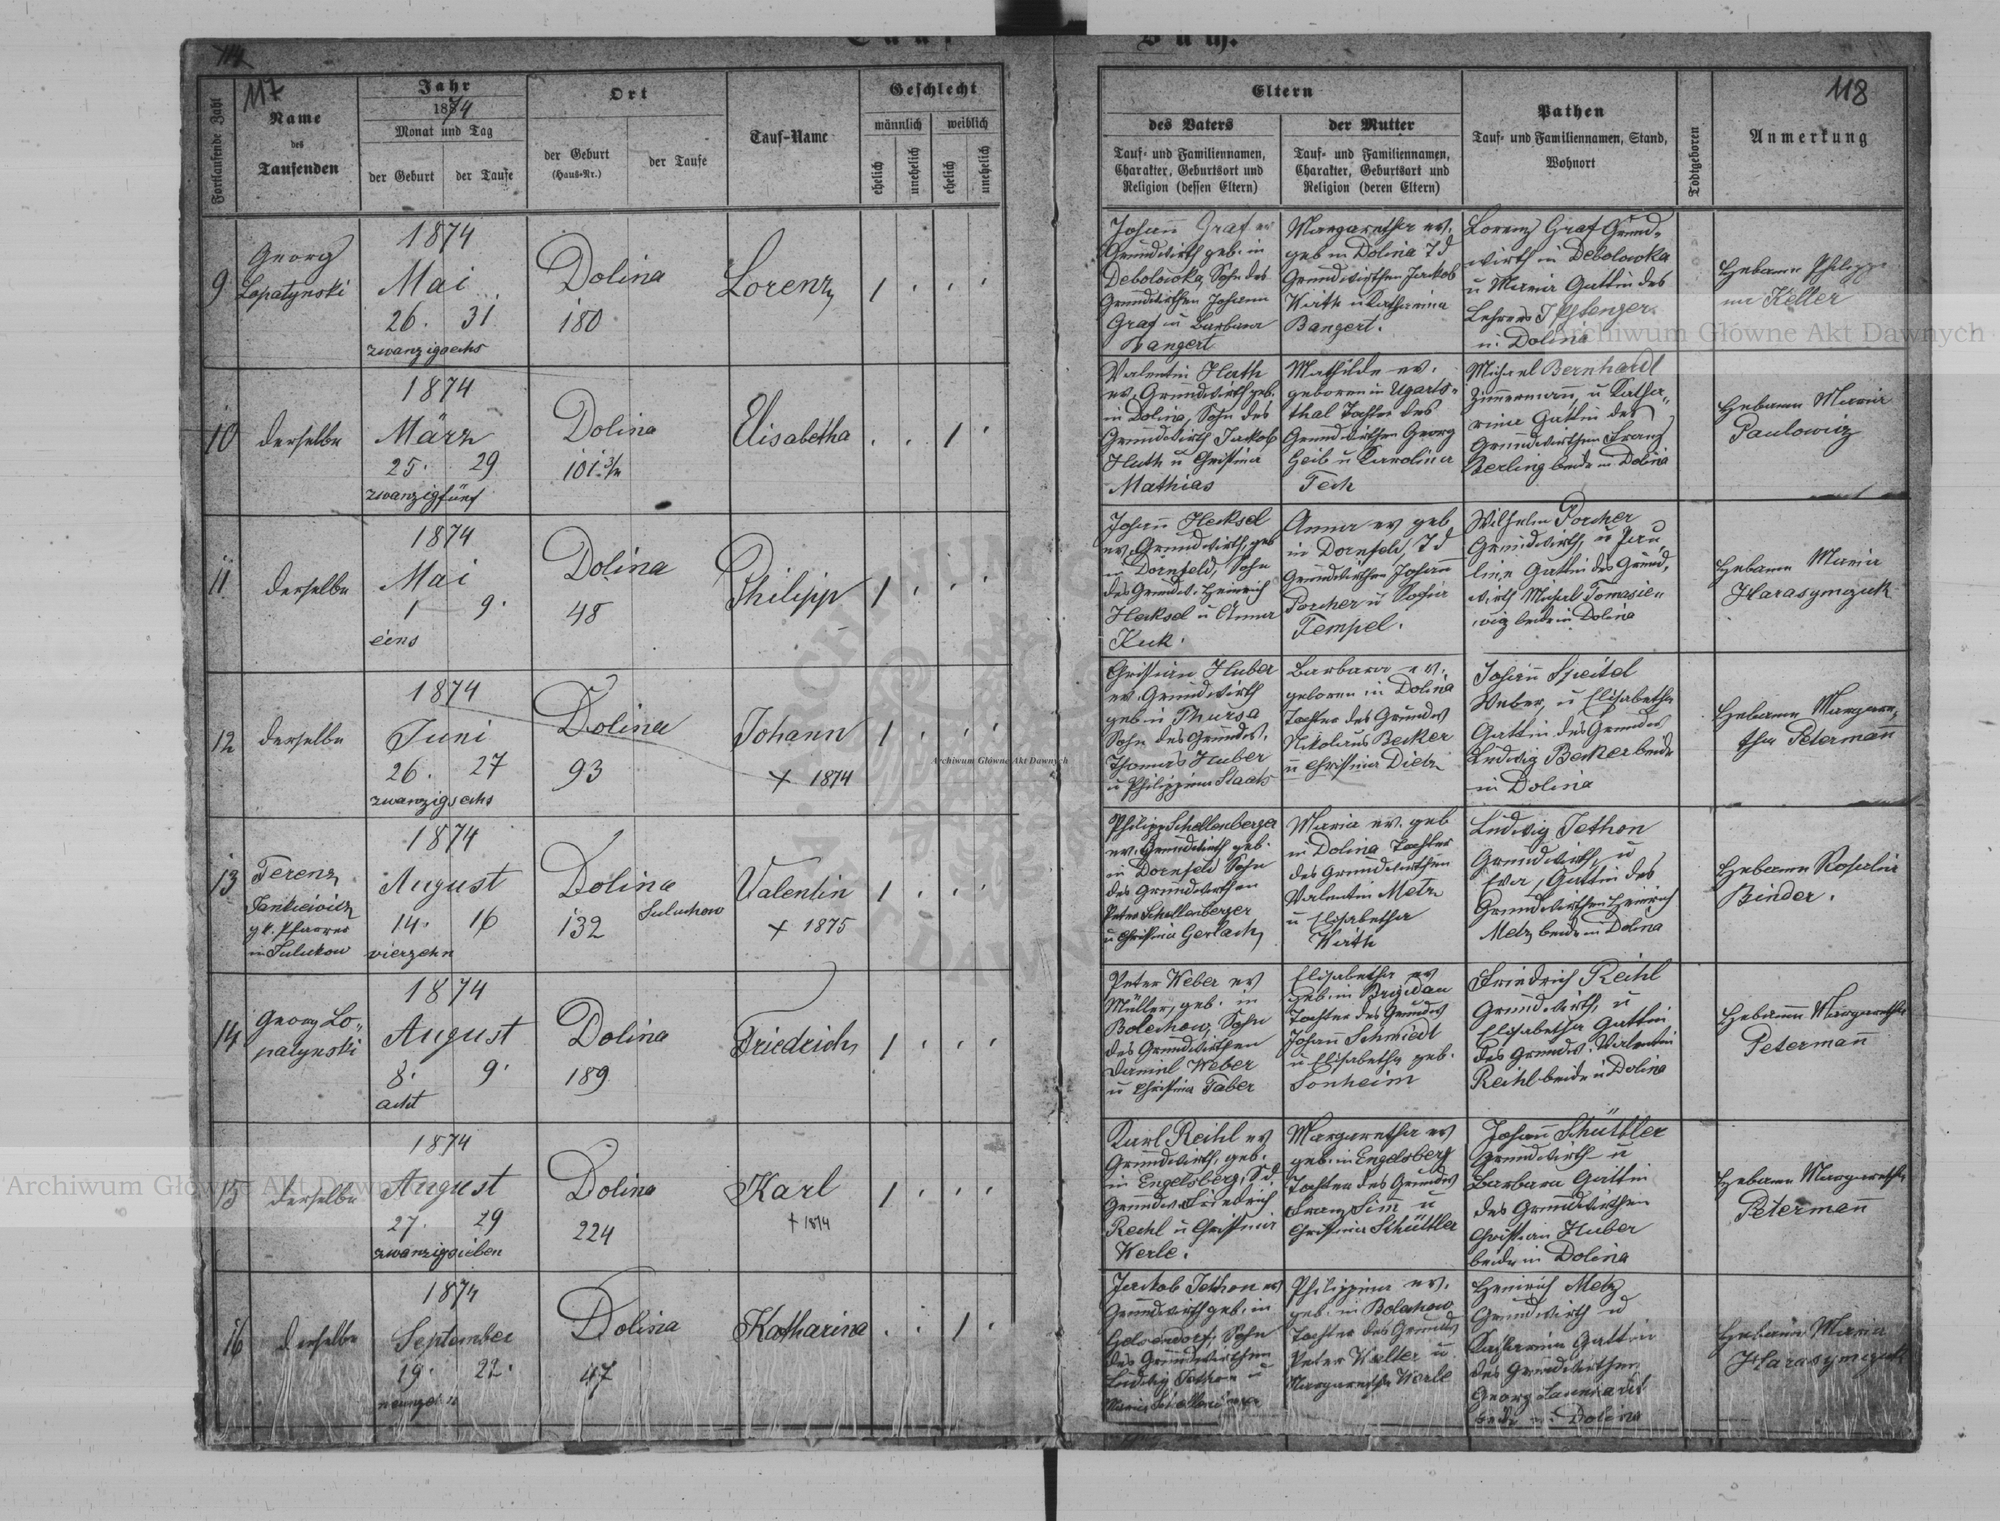 Tauf Buch.
114
117
118
Fortlaufende Zahl
Name
des
Taufenden
Jahr
1874
Monat und Tag
der Geburt
der Taufe
Ort
der Geburt
(Haus-Nr.)
der Taufe
Tauf-Name
Geschlecht
männlich
weiblich
ehelich
unehelich
ehelich
unehelich
Eltern
des Vaters
Tauf- und Familiennamen,
Charakter, Geburtsort und
Religion (dessen Eltern)
der Mutter
Tauf- und Familiennamen,
Charakter, Geburtsort und
Religion (deren Eltern)
Pathen
Tauf- und Familiennamen, Stand,
Wohnort
Todtgeboren
Anmerkung
9
Georg
Lopatynski
1874
Mai
26. 31
zwanzigsechs
Dolina
180
Lorenz
Johann Graf ev
Grundwirth geb. in
Debolowka, Sohn des
Grundwirthen Johann
Graf u Barbara
Bangert
Margaretha ev.
geb in Dolina T d
Grundwirthen Jackob
Wirth u Katharina
Bangert.
Lorenz Graf Grund-
wirth in Debolowka
u Maria Gattin des
Lehrers J
in Dolina
Hebamm Philippi
na Keller
10
derselbe
1874
März
25. 29
zwanzigfünf
Dolina
101
Elisabetha
Valentin Huth
ev. Grundwirth geb.
in Dolina, Sohn des
Grundwirth Jackob
Huth u Christina
Mathias
Mathilde ev.
geboren in Ugarts-
thal Tochter des
Grundwirthen Georg
Geib u Karolina
Tech
Michael Bernhardt
Zimmermann, u Katha-
rina Gattin des
Grundwirthen Franz
Berling beide in Dolina
Hebamm Maria
Paulowicz
11
derselbe
1874
Mai
1 9.
eins
Dolina
48
Philipp
Johann Hecksel
ev. Grundwirth, geb
in Dornfeld, Sohn
des Grundw. Heinrich
Hecksel u Anna
Kuk.
Anna ev geb
in Dornfeld, T d
Grundwirthen Johann
Porcher u Sofia
Tempel.
Wilhelm Porcher
Grundwirth, u Pau
line Gattin des Grund-
wirth Michael Tomasie-
wicz beide in Dolina
Hebamm Maria
Harasymczuk
12
derselbe
1874
Juni
26. 27
zwanzigsechs
Dolina
93
Johann
+ 1874
Christian Huber
ev. Grundwirth
geb in Thursa
Sohn des Grundw.
Thomas Huber
u Philippina Staats
Barbara ev.
geboren in Dolina
Tochter des Grundw
Nikolaus Becker
u Christina Dietz
Johann Speitel
Weber, u Elisabetha
Gattin des Grundw
Ludwig Becker beide
in Dolina
Hebamm Margare-
tha Petermann
13
Terenz
Jankiewicz
gk. Pfarrer
in Sulukow
1874
August
14. 16
vierzehn
Dolina
132
Suluchow
Valentin
+ 1875
Philipp Schellenberger
ev. Grundwirth geb.
in Dornfeld Sohn
des Grundwirthen
Peter Schellenberger
u Christina Gerlach
Maria ev. geb
in Dolina Tochter
des Grundwirthen
Valentin Metz
u Elisabetha
Wirth
Ludwig Jethon
Grundwirth, u
Eva, Gattin des
Grundwirthen Heinrich
Metz beide in Dolina
Hebamm Rosalia
Binder.
14
Georg Lo-
patynski
1874
August
8. 9.
acht
Dolina
189
Friedrich
Peter Weber ev
Müller, geb. in
Bolechow, Sohn
des Grundwirthen
Daniel Weber
u Christina Faber
Elisabetha ev
geb. in Brigidau
Tochter des Grundw
Johann Schmiedt
u Elisabetha geb.
Sonheim
Friedrich Reihl
Grundwirth, u
Elisabetha Gattin
des Grundw. Valentin
Reihl beide in Dolina
Hebamm Margaretha
Petermann
15
derselbe
1874
August
27. 29
zwanzigsieben
Dolina
224
Karl
+ 1874
Karl Reihl ev
Grundwirth, geb.
in Engelsberg, S. d.
Grundw. Friedrich
Reihl u Christina
Werle.
Margaretha ev
geb. in Engelsberg
Tochter des Grundw
Franz Simm u
Christina Schüttler
Johann Schüttler
Grundwirth u
Barbara Gattin
des Grundwirthen
Christian Huber
beide in Dolina
Hebamm Margaretha
Petermann
16
derselbe
1874
September
19. 22.
neunzehn
Dolina
47
Katharina
Jackob Jethon ev
Grundwirth geb. in
Gelsendorf, Sohn
des Grundwirthen
Ludwig Jethon u
Philippina ev.
geb. in Bolechow
Tochter des Grundw
Peter Walter u
Margaretha Werle
Heinrich Metz
Grundwirth u
Katharina Gattin
des Grundwirthen
Georg
beide in Dolina
Hebamm Maria
Harasymczuk
Archiwum Główne Akt Dawnych
Archiwum Główne Akt Dawnych
Archiwum Główne Akt Dawnych